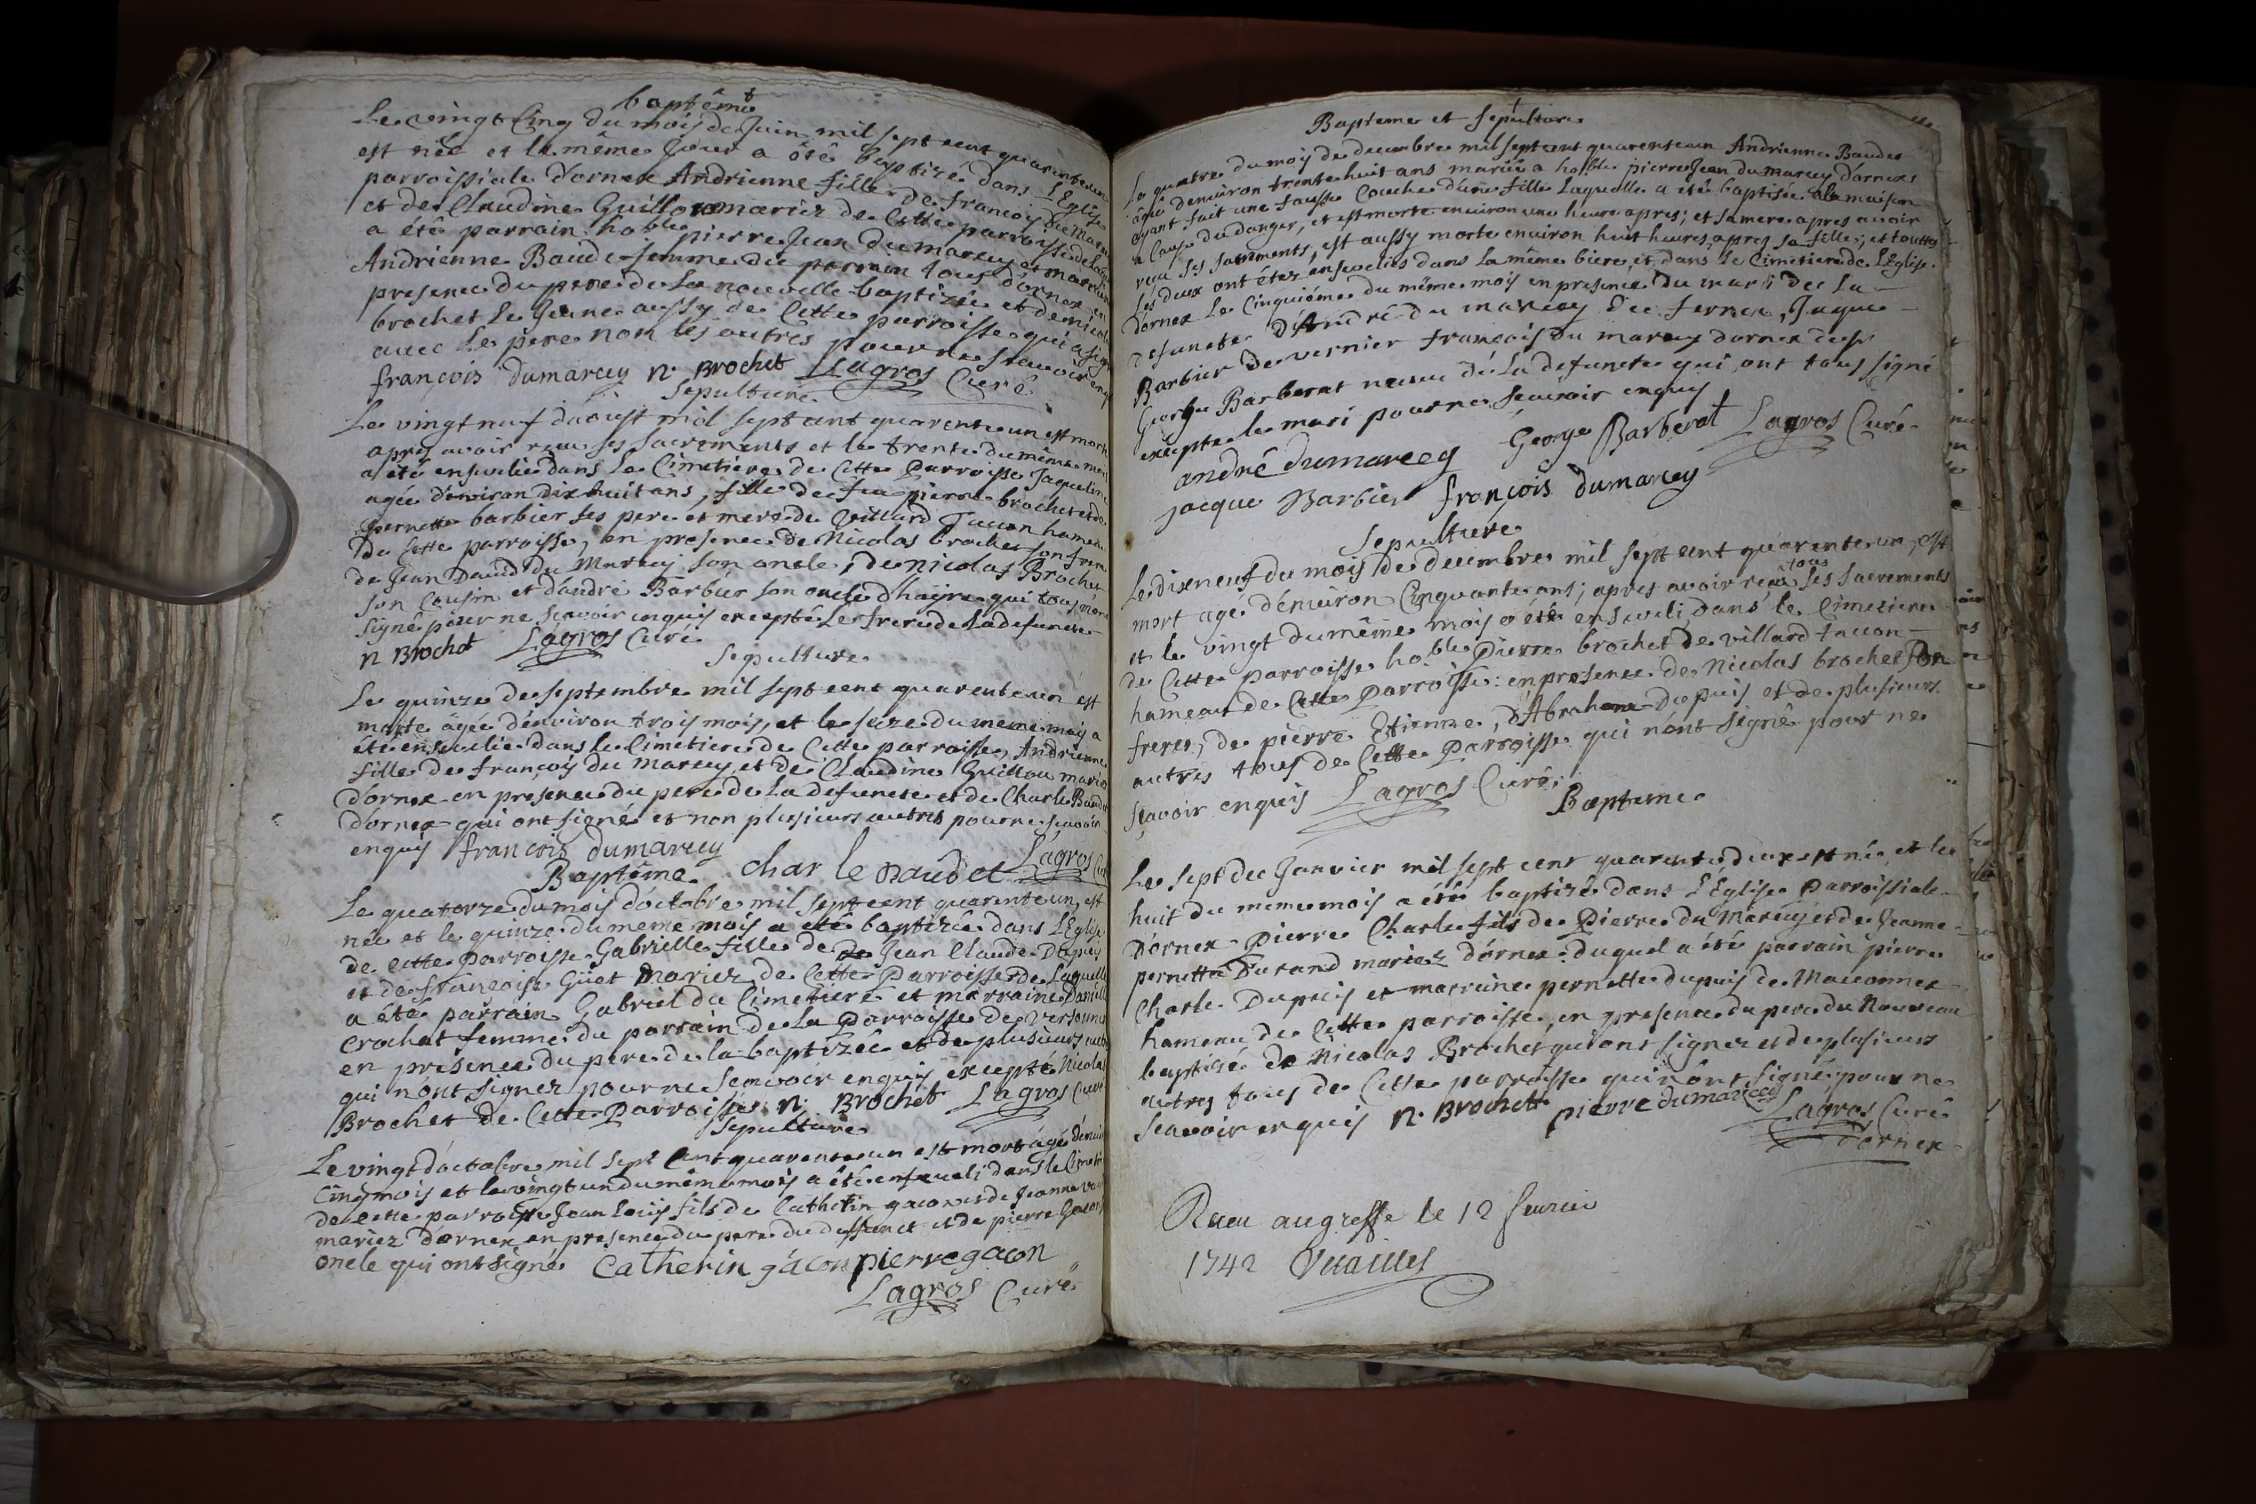 baptême
Le vingt cinq du mois de Juin mil sept cent quarenteun
est née et le même jour a été baptizée dans l'Eglise
parroissiale d'ornex Andrienne fille de françois Du Marcy
et de Claudine Guillou mariez de Cette parroisse de laquelle
a été parrain hoble pierre Jean du marcey et marraine
Andrienne Baud femme du parrain tous d'ornex, en
presence du pere de la nouvelle baptizée et de nicolas
brochet le Jeune aussy de Cette parroisse qui a signé
avec le pere non les autres pour ne scavoir enquis
françois dumarcey n. Brochet Lagros Curé
Sepulture
Le vingt neuf d'aoust mil sept cent quarenteun est morte
apres avoir recu ses sacrements et le trente du même mois
a été ensevelie dans le Cimetiere de Cette Parroisse Jaqueline
agée d'environ dix huit ans, fille de feu pierre brochet et de
pernette barbier ses pere et mere de Villard Taccon hameau
de Cette parroisse, en presence de Nicolas brochet son frere
de Jean David du Marcey son oncle, de nicolas Brochet
son Cousin et d'andré Barbier son oncle qui tous n'ont
signé pour ne scavoir enquis excepté le frere de la defuncte
n Brochet Lagros Curé
Sepulture
Le quinze de septembre mil sept cent quarenteun est
morte agée d'environ trois mois, et le seize du meme mois a
été ensevelie dans le Cimetiere de Cette parroisse, Andrienne
fille de françois du Marcey et de Claudine Guillou mariez
d'ornex en presence du pere de la defuncte et de Charle Baudet
d'ornex qui ont signé et non plusieurs autres pour ne scavoir
enquis françois dumarcey
Baptême charle Baudet Lagros Curé
Le quatorze du mois d'octobre mil sept cent quarenteun, est
née et le quinze du meme mois a été baptizée dans l'Eglise
de cette parroisse Gabrielle fille de Jean Claude Dupuy
et de françoise Guet Mariez de Cette Parroisse de Laquelle
a été parrain Gabriel du Cimetiere et marraine
Crochat femme du parrain de La Parroisse de Versonnex
en presence du pere de la baptizée et de plusieurs autres
qui n'ont signez pour ne scavoir enquis excepté Nicolas
Brochet de Cette Parroisse n. Brochet Lagros Curé
Sepulture
Le vingt d'octobre mil sept Cent quarenteun est mort agé d'environ
Cinq mois et le vingt un du même mois a été enseveli dans le Cimetiere
de cette parroisse Jean Louis fils de Catherin gacon et de Jeanne
mariez d'ornex en presence du pere du deffunct et de pierre Gacon
oncle qui ont signé Catherin gacon pierre gacon
Lagros Curé
Bapteme et sepulture
Le quatre du mois de decembre mil sept cent quarenteun Andrienne Baudet
agée d'environ trente huit ans mariée a hoble pierre Jean du marcey d'ornex
ayant fait une fausse Couche d'une fille Laquelle a été baptisée a la maison
a Cause du danger, et est morte environ une heure apres; et sa mere apres avoir
recu ses sacrements, est aussy morte environ huit heures apres sa fille, et touttes
les deux ont étez ensevelies dans la même biere, et dans le Cimetiere de l'Eglise
d'ornex le Cinquiéme du même mois en presence du mari de la
defuncte, d'André du marcey de fernex, Jaque
Barbier de vernier françois du marcey d'ornex de sr
George Barberat neveu de la defuncte qui ont tous signé
excepte le mari pour ne scavoir enquis
andré dumarcey George Barberat Lagros Curé
jacque Barbier françois dumarcey
Sepulture
Le dixneuf du mois de decembre mil sept cent quarenteun, est
mort agé d'environ Cinquante ans; apres avoir recu tous ses sacrements
et le vingt du même mois a été enseveli dans le Cimetiere
de Cette Parroisse hoble Pierre brochet de villard taccon
hameau de Cette Parroisse: en presence de Nicolas brochet son
frere, de pierre Etienne, d'Abraham Dupuis et de plusieurs
autres tous de Cette Parroisse qui n'ont signé pour ne
scavoir enquis Lagros Curé
Bapteme
Le sept de Janvier mil sept cent quarente deux est né, et le
huit du meme mois a été baptizé dans l'Eglise Parroissiale
d'ornex Pierre Charle fils de Pierre du Marcey et de Jeanne
pernette Durand mariez d'ornex: duquel a été parrain pierre
Charle Dupuis et marraine pernette dupuis de Maconnex
hameau de Cette parroisse, en presence du pere du Nouveau
baptisé de Nicolas Brochet qui ont signez et de plusieurs
autres tous de Cette parroisse qui n'ont signé pour ne
scavoir enquis n. Brochet pierre dumarcey Lagros Curé
d'ornex
Receu au greffe le 12 fevrier
1742